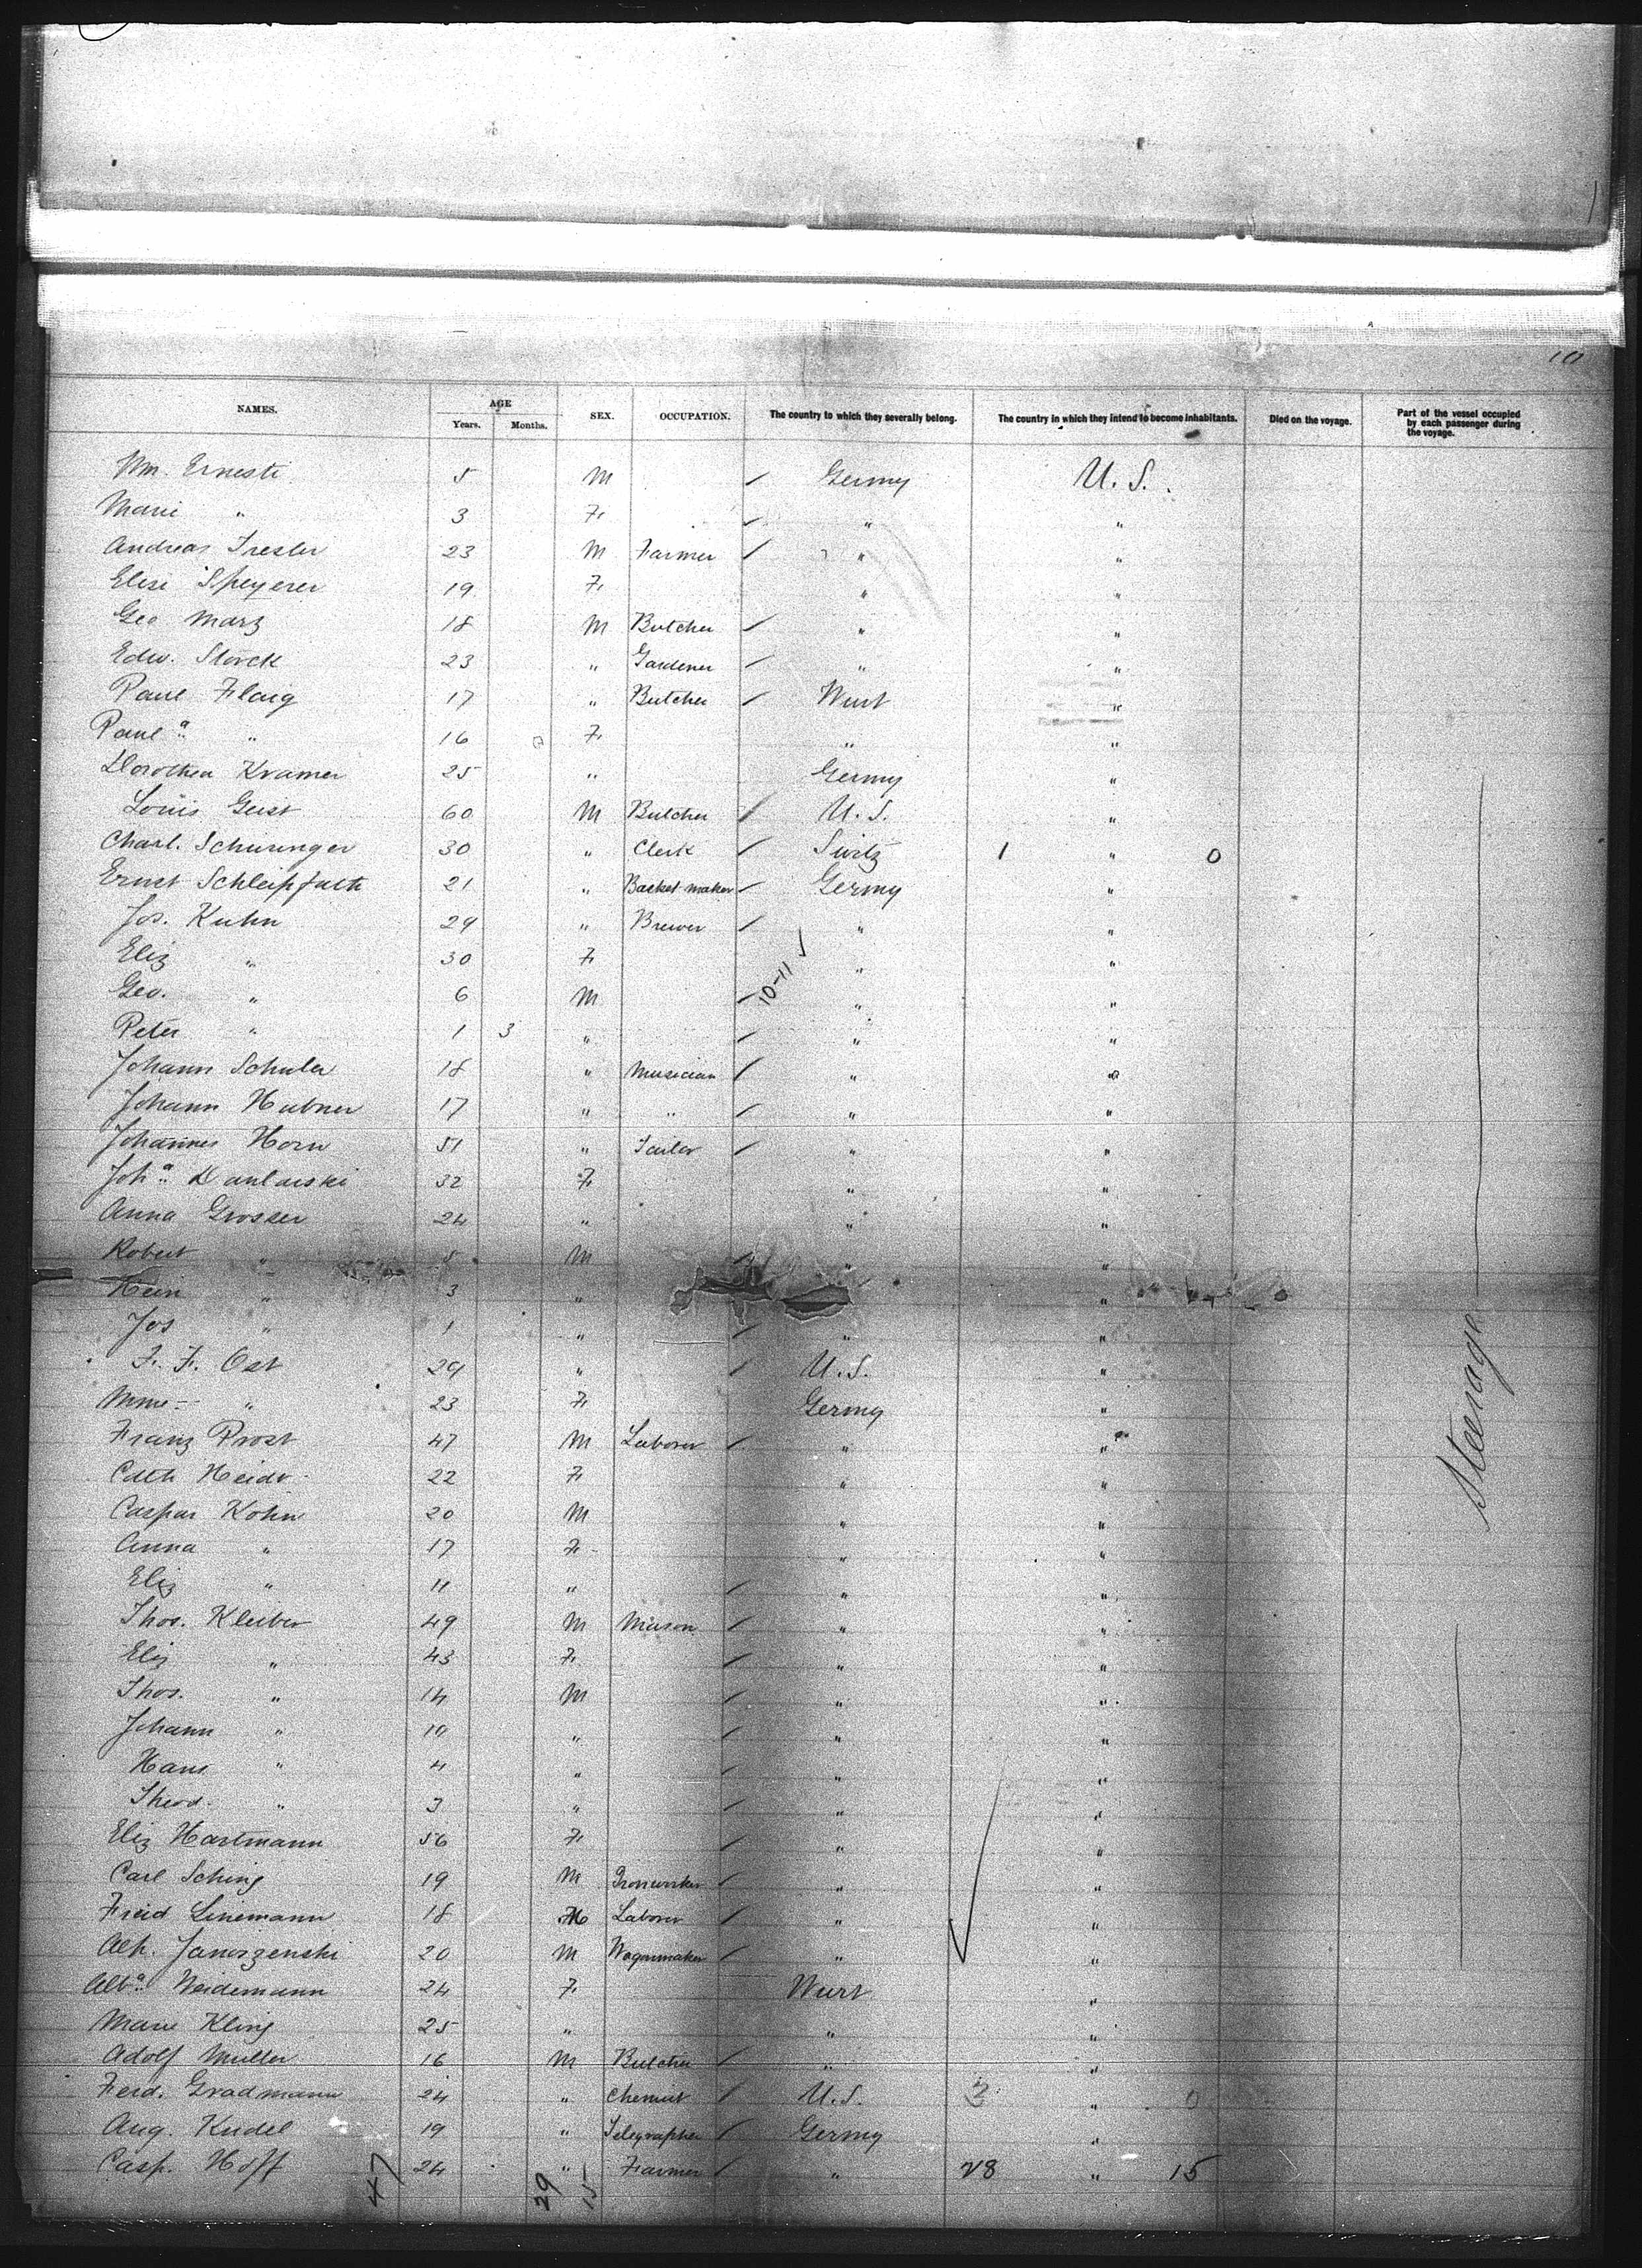 10
NAMES. AGE Years. Months. SEX. OCCUPATION. The country to which they severally belong. The country in which they intend to become inhabitants. Died on the voyage. Part of the vessel occupied by each passenger during the voyage.
Wm. Ernesti 5 M Germy U.S.
Marie " 3 F " "
Andreas Tresler 23 M Farmer " "
Elise Speyerer 19 F " "
Geo Marz 18 M Butcher " "
Edw. Storck 23 " Gardener " "
Paul Flaig 17 " Butcher Wurt "
Paul.a " 16 F " "
Dorothea Kramer 25 " Germy "
Louis Geist 60 M Butcher U.S. "
Charl. Schwinger 30 " Clerk Switz 1 " 0
Ernst Schleipfuth 21 " Basket maker Germy "
Jos. Kuhn 29 " Brewer " "
Eliz " 30 F " "
Geo. " 6 M 10-11 " "
Peter " 1 3 " " "
Johann Schuler 18 " Musician " "
Johann Hubner 17 " " " "
Johannes Horn 51 " Tailor " "
Joh.a 32 F " "
Anna Grosser 24 " " "
Robert " 5 M " "
Hein " 3 " "
Jos " 1 " " "
F. F. Ost 29 " U.S. "
Mme " 23 F Germy "
Franz Prost 47 M Laborer " "
Cath Heidt 22 F " "
Caspar Kohn 20 M " "
Anna " 17 F " "
Eliz " 11 " " "
Thos. Kleiber 49 M Mason " "
Eliz " 43 F " "
Thos. " 14 M " "
Johann " 10 " " "
Hans " 4 " " "
Theod. " 3 " " "
Eliz Hartmann 56 F " "
Carl Schinz 19 M Ironworker " "
Fried Linemann 18 M Laborer " "
Alh. Janoszenski 20 M Wagonmaker " "
Alb.a Weidemann 24 F Wurt "
Marie Kling 25 " " "
Adolf Muller 16 M Butcher " "
Ferd. Gradmann 24 " Chemist U.S. 2 " 0
Aug. Kudel 19 " Telegrapher Germy "
Casp. Hoff 24 " Farmer " 28 " 15
47 29 15
Steerage